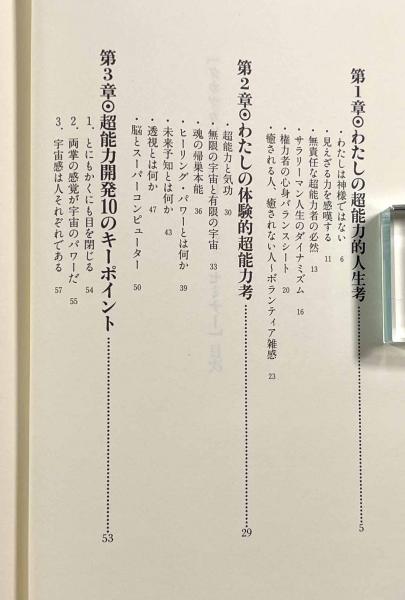 第1章⊙わたしの超能力的人生考……5
・わたしは神様ではない 6
・見えざる力を感嘆する 11
・無責任な超能力者の必然 13
・サラリーマン人生のダイナミズム 16
・権力者の心身バランスシート 20
・癒される人、癒されない人〜ボランティア雑感 23
第2章⊙わたしの体験的超能力考……29
・超能力と気功 30
・無限の宇宙と有限の宇宙 33
・魂の帰巣本能 36
・ヒーリング・パワーとは何か 39
・未来予知とは何か 43
・透視とは何か 47
・脳とスーパーコンピューター 50
第3章⊙超能力開発10のキーポイント……53
1、とにもかくにも目を閉じる 54
2、両掌の感覚が宇宙のパワーだ 55
3、宇宙感は人それぞれである 57